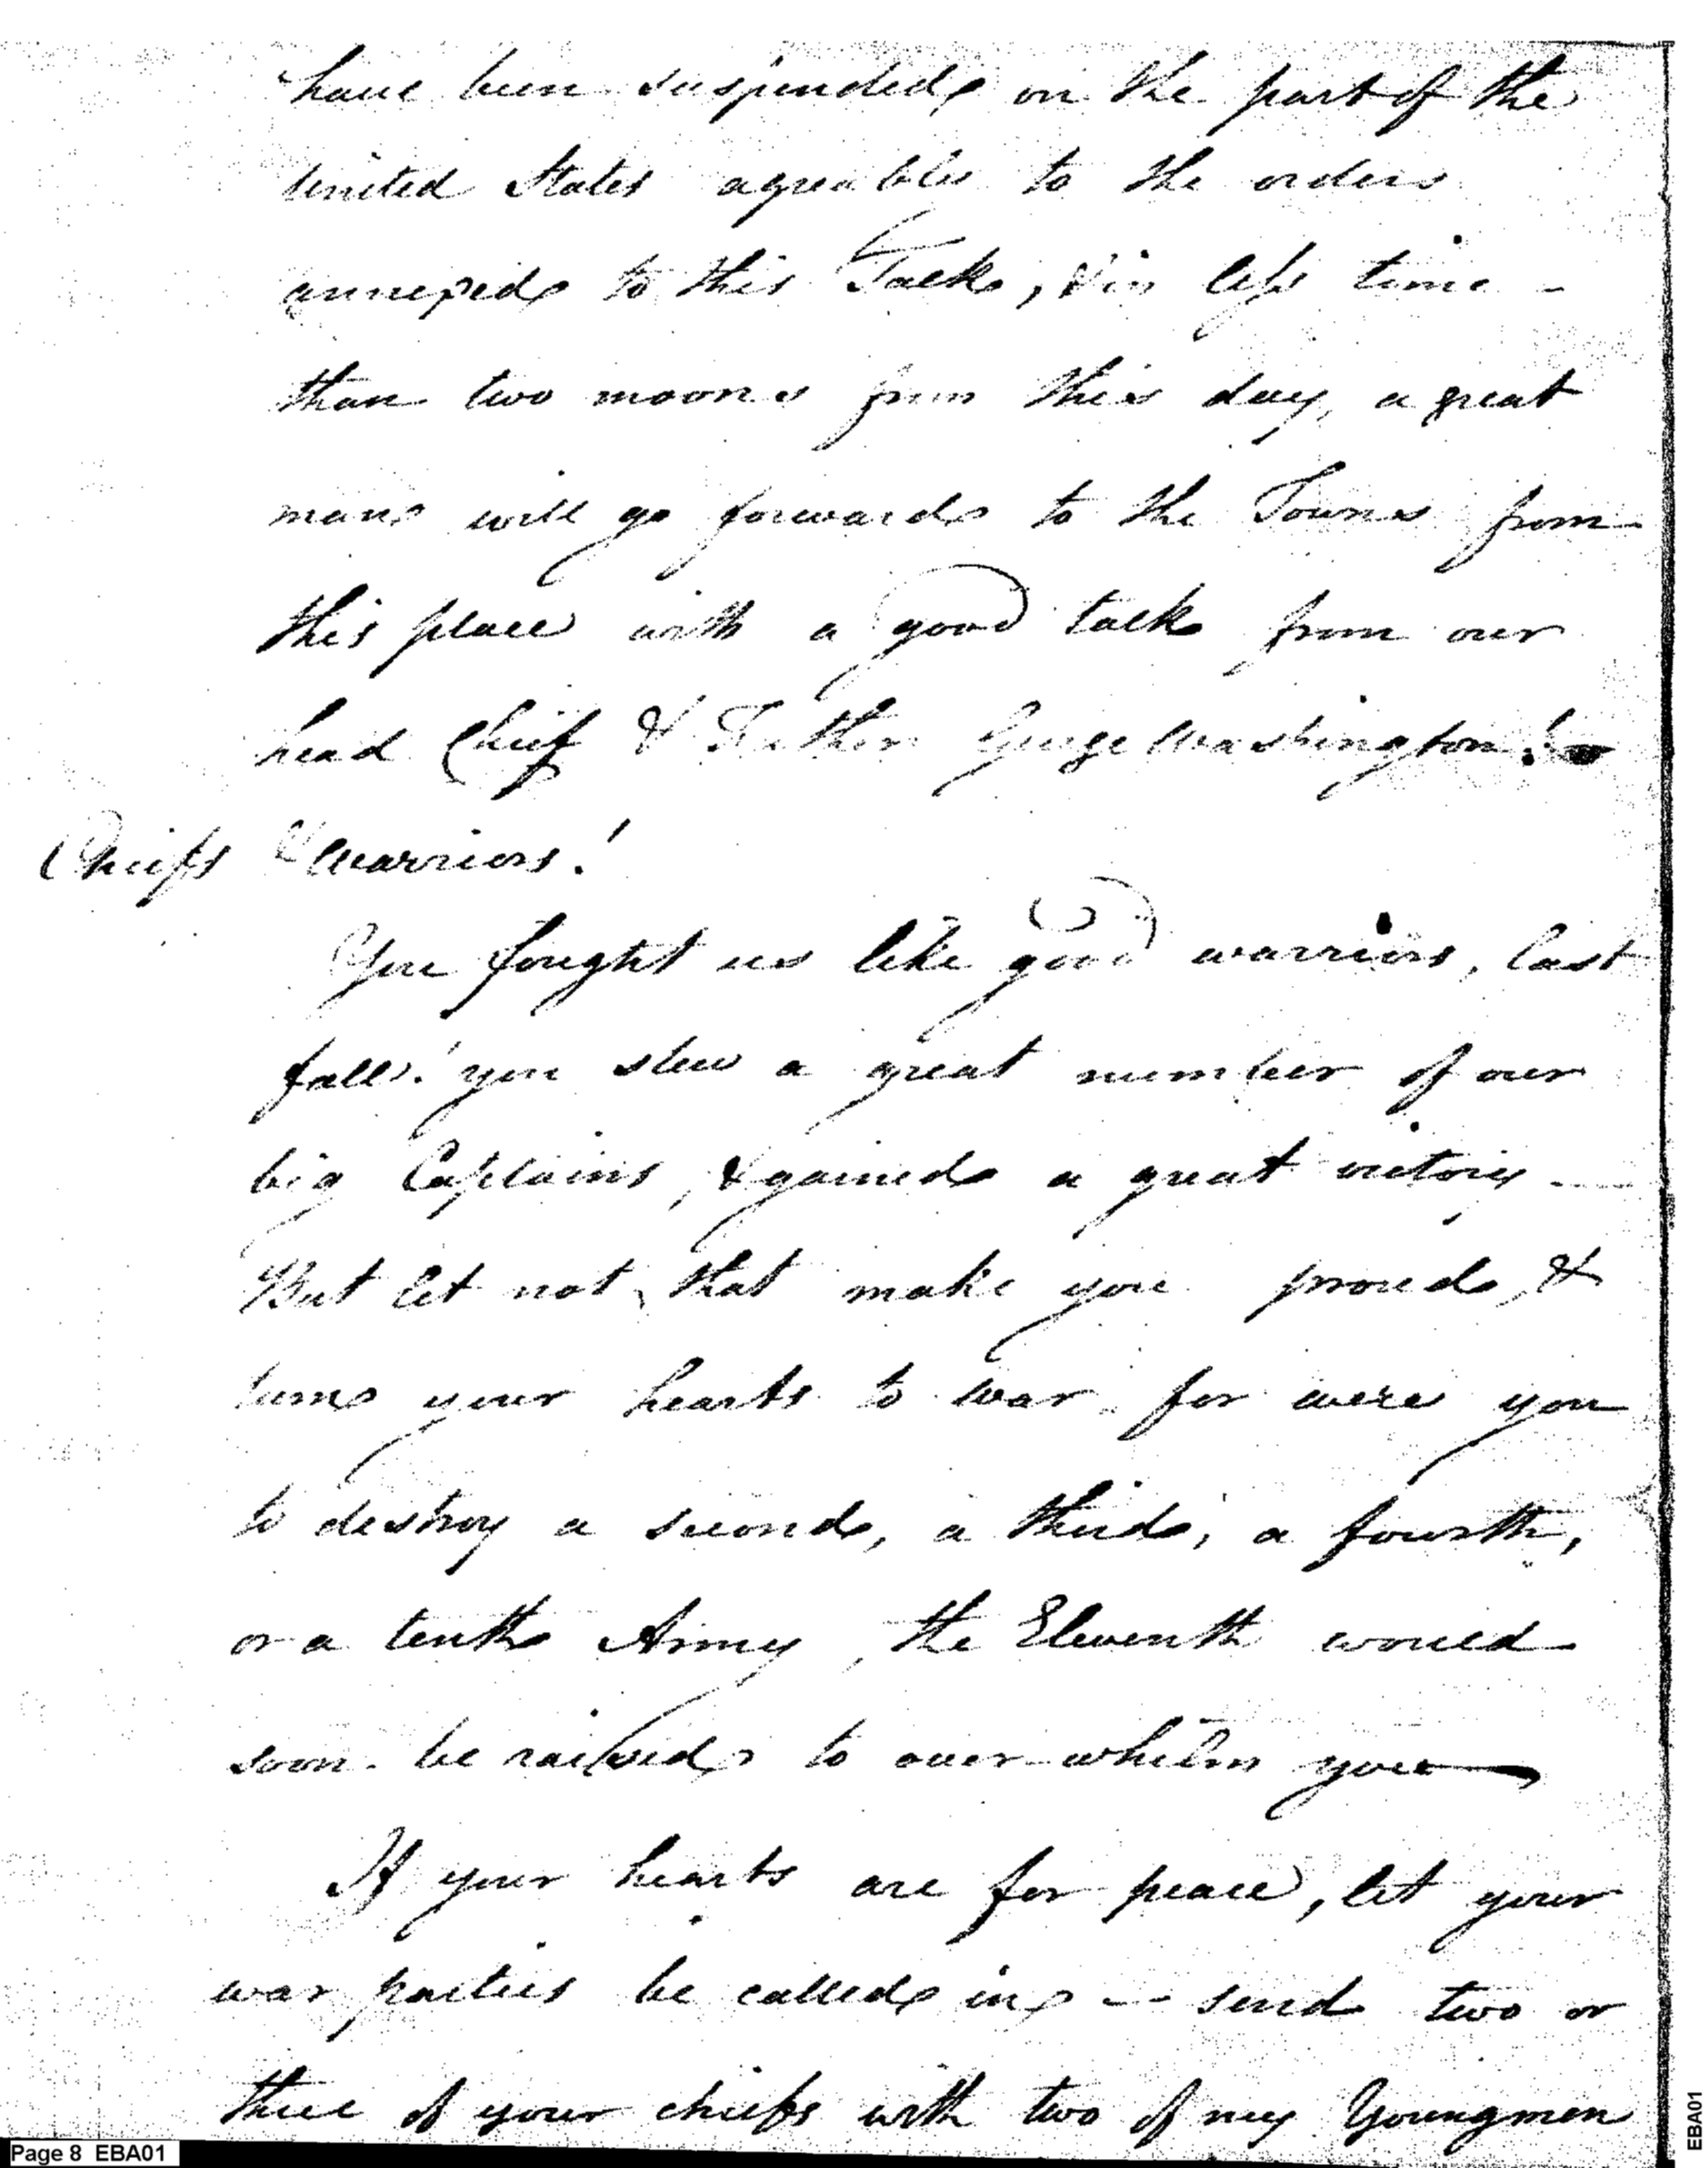 have been suspended, on the part of the
United States agreable to the orders
annexed to this Talk, & in less time -
than two moons from this day, a great
man will go forward to the Towns from
this place with a good talk from our
head Chief & Father George Washington!
Chiefs & Warriors!
You fought us like good warriors, last
fall! you slew a great number of our
big Captains, & gained a great victory --
But let not that make you proud, &
turn your hearts to war, for were you
to destroy a second, a third, a fourth,
or a tenth Army, the Eleventh would
soon be raised to over-whelm you —
If your hearts are for peace, let your
war parties be called in -- send two or
three of your chiefs with two of my Youngmen
Page 8 EBA01
EBA01